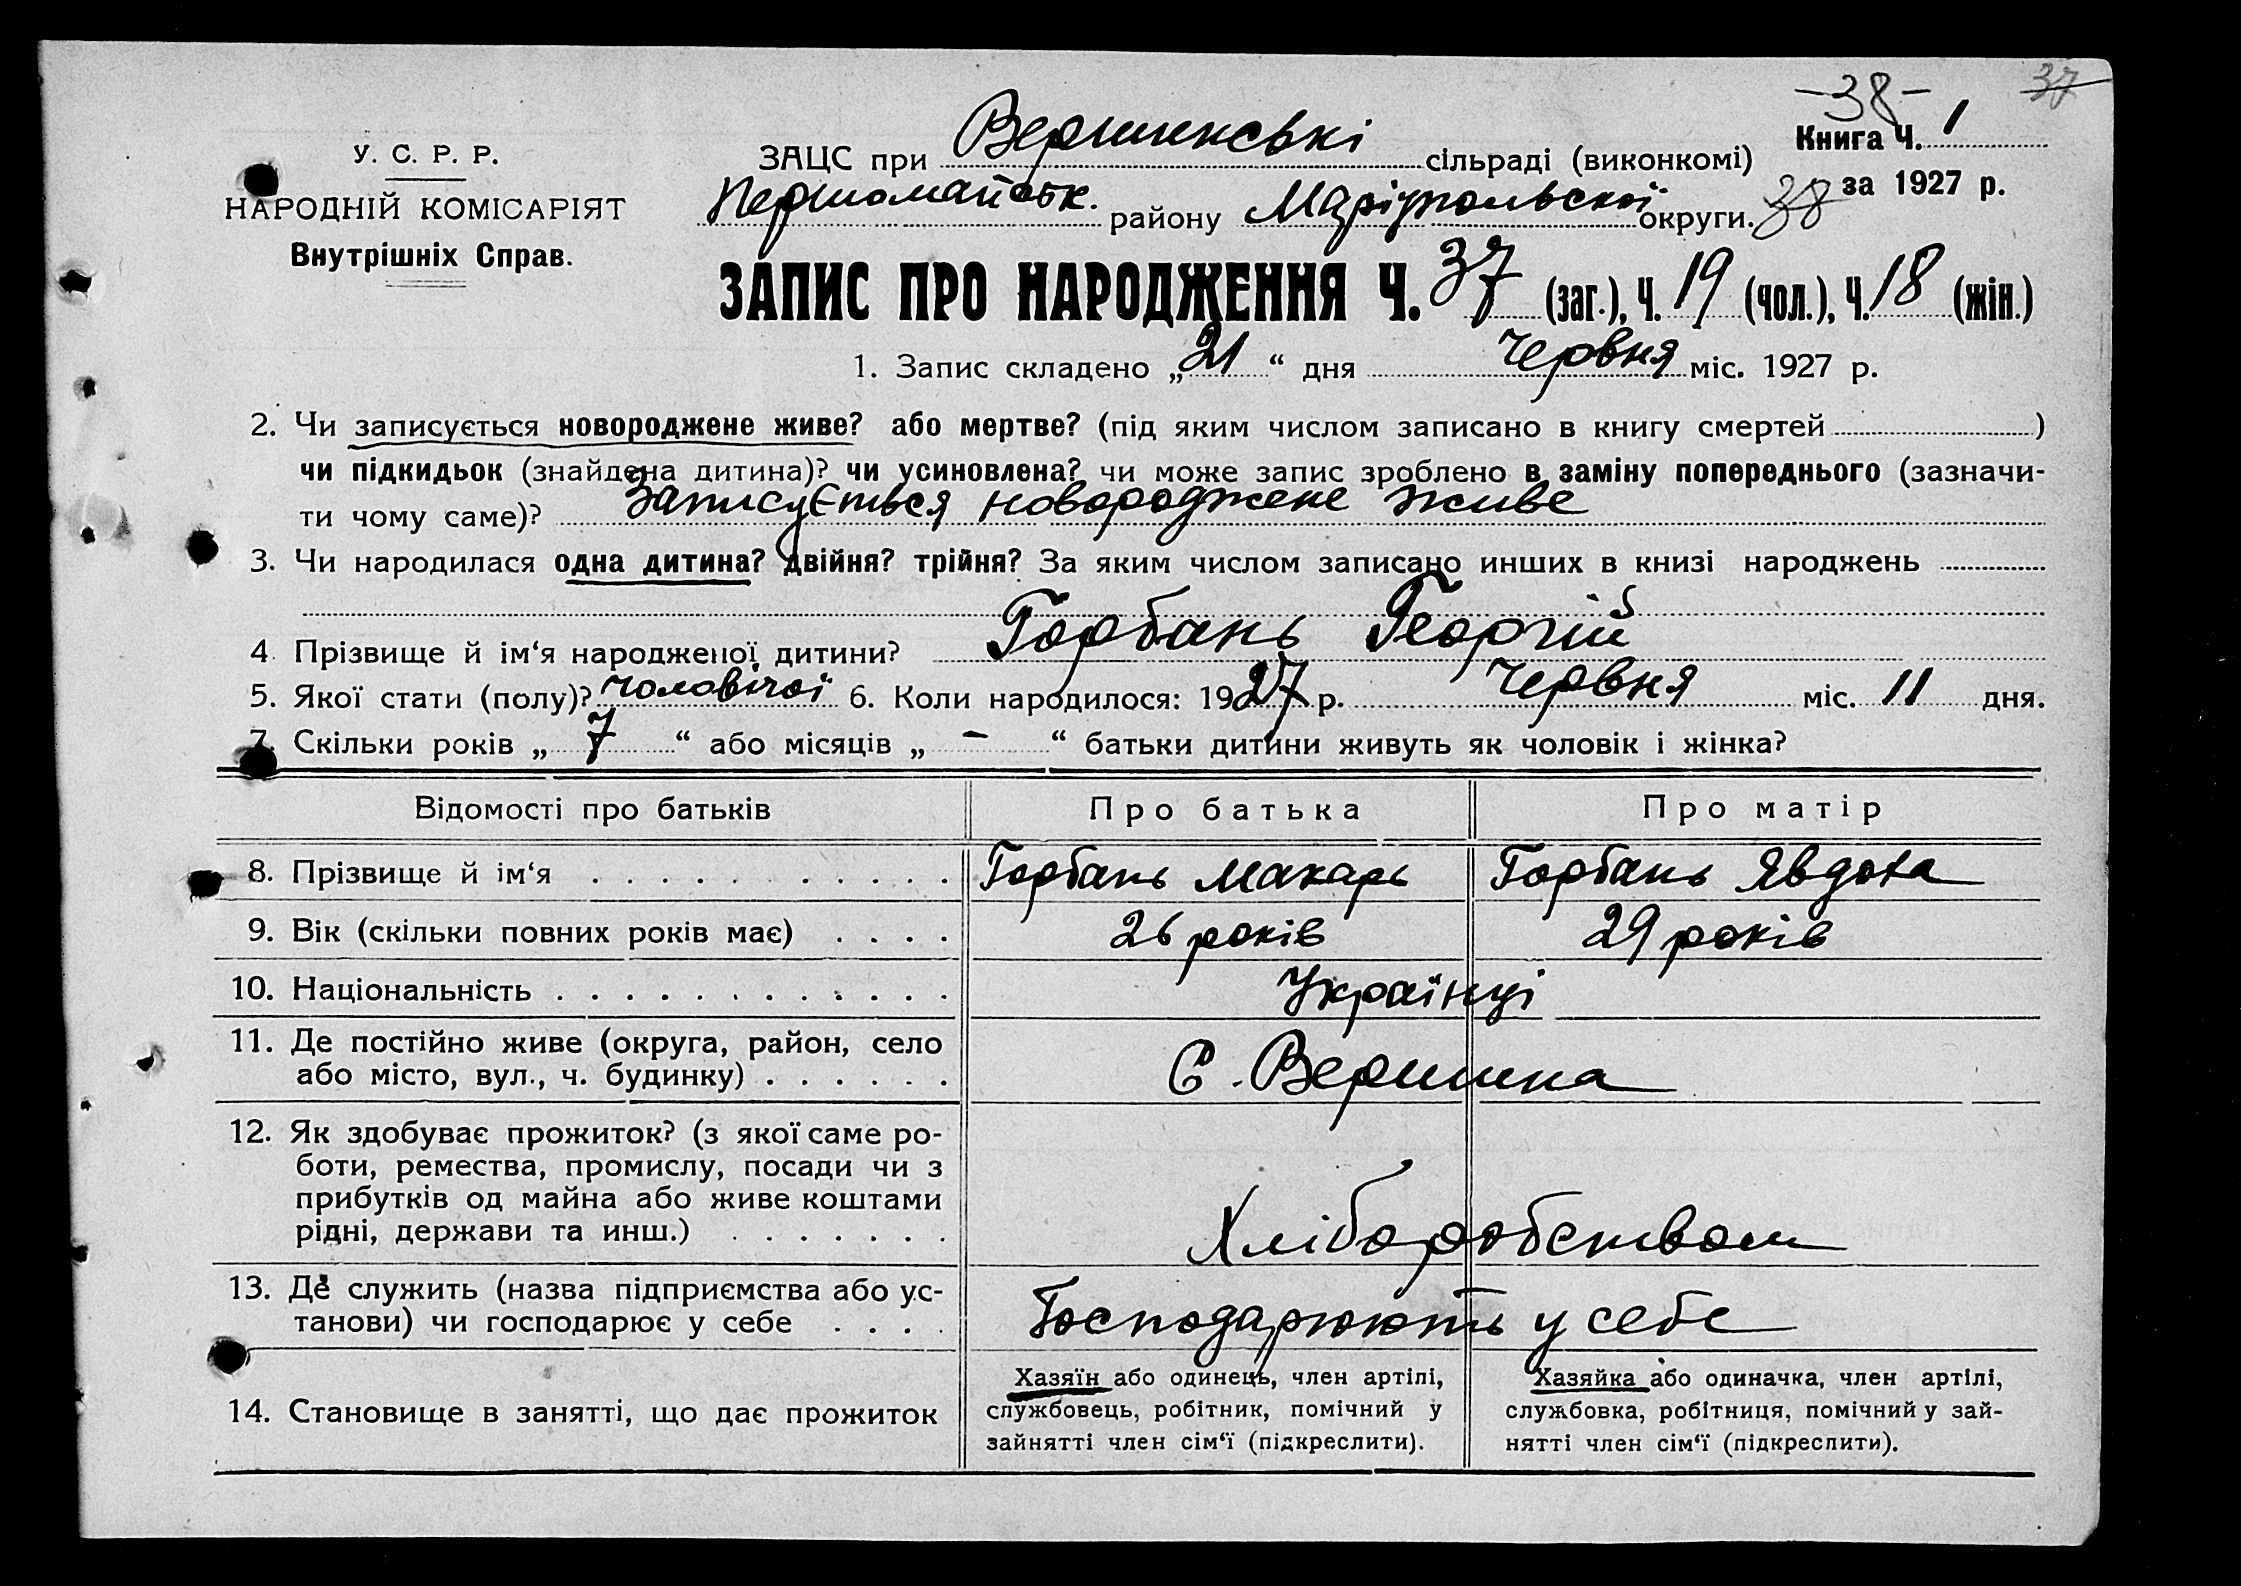 -38- 37
У. С. Р. Р.
НАРОДНІЙ КОМІСАРІЯТ
Внутрішніх Справ.
Книга Ч. 1
за 1927 р.
ЗАЦС при Вершинські сільраді (виконкомі)
Першомайськ. району Маріупольскої округи. 38
ЗАПИС ПРО НАРОДЖЕННЯ Ч. 37 (заг.), Ч. 19 (чол.), Ч. 18 (жін.)
1. Запис складено „21“ дня Червня міс. 1927 р.
2. Чи записується новороджене живе? або мертве? (під яким числом записано в книгу смертей )
чи підкидьок (знайдена дитина)? чи усиновлена? чи може запис зроблено в заміну попереднього (зазначи-
ти чому саме)? Записується новороджене живе
3. Чи народилася одна дитина? двійня? трійня? За яким числом записано инших в книзі народжень
4. Прізвище й ім‘я народженої дитини? Горбань Георгій
5. Якої стати (полу)? чоловічої 6. Коли народилося: 1927 р. Червня міс. 11 дня.
7. Скільки років „7“ або місяців „-“ батьки дитини живуть як чоловік і жінка?
Відомості про батьків Про батька Про матір
8. Прізвище й ім‘я Горбань Макарь Горбань Явдоха
9. Вік (скільки повних років має) 26 років 29 років
10. Національність Українці
11. Де постійно живе (округа, район, село
або місто, вул., ч. будинку) С. Вершина
12. Як здобуває прожиток? (з якої саме ро-
боти, ремества, промислу, посади чи з
прибутків од майна або живе коштами
рідні, держави та инш.) Хлібаробством
13. Де служить (назва підприємства або ус-
танови) чи господарює у себе Господарюють у себе
14. Становище в занятті, що дає прожиток
Хазяїн або одинець, член артілі,
службовець, робітник, помічний у
зайнятті член сім‘ї (підкреслити).
Хазяйка або одиначка, член артілі,
службовка, робітниця, помічний у зай-
нятті член сім‘ї (підкреслити).